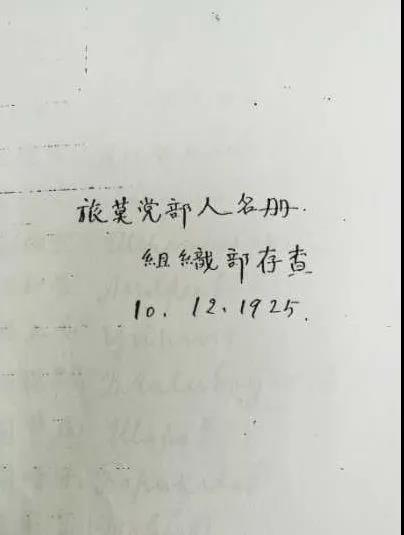 旅莫党部人名册.
組織部存查
10. 12. 1925.